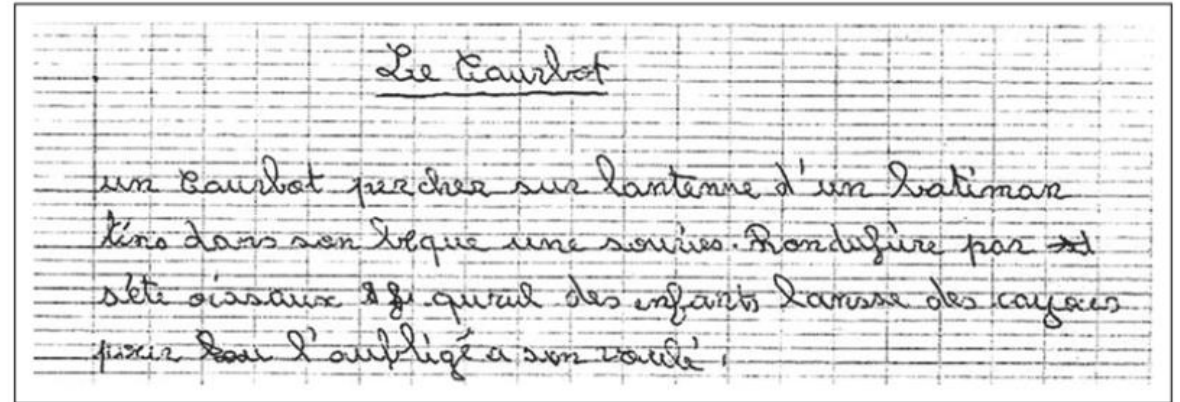 Le Courbot
un Courbot percher sur lantenne d'un batiman
tins dans son beque une souries. Rondufüre par
s'ête oissaux qu'il des enfants lansse des cayoes
pour l'oubligé a son voulé.